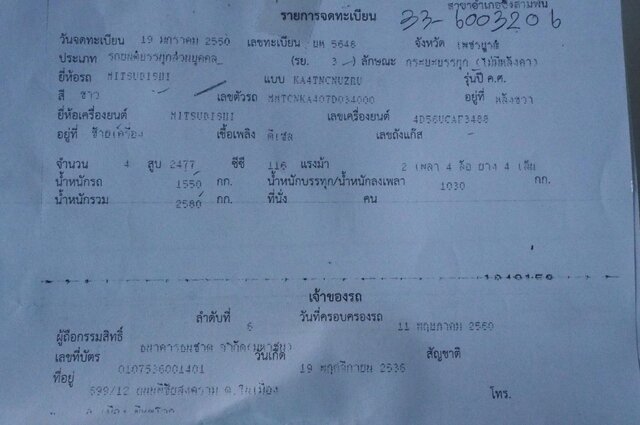 สาขาอำเภอบึงสามพัน
รายการจดทะเบียน 33-6003206
วันจดทะเบียน 19 มกราคม 2550 เลขทะเบียน บพ 5648 จังหวัด เพชรบูรณ์
ประเภท รถยนต์บรรทุกส่วนบุคคล (รย. 3 ) ลักษณะ กระบะบรรทุก (ไม่มีหลังคา)
ยี่ห้อรถ MITSUBISHI แบบ KA4TNCNUZRU รุ่นปี ค.ศ.
สี ขาว เลขตัวรถ MMTCNKA407D034000 อยู่ที่ หลังขวา
ยี่ห้อเครื่องยนต์ MITSUBISHI เลขเครื่องยนต์ 4D56UCAP3488
อยู่ที่ ซ้ายเครื่อง เชื้อเพลิง ดีเซล เลขถังแก๊ส
จำนวน 4 สูบ 2477 ซีซี 116 แรงม้า 2 เพลา 4 ล้อ ยาง 4 เส้น
น้ำหนักรถ 1550 กก. น้ำหนักบรรทุก/น้ำหนักลงเพลา 1030 กก.
น้ำหนักรวม 2580 กก. ที่นั่ง คน
เจ้าของรถ
ลำดับที่ 6 วันที่ครอบครองรถ 11 พฤษภาคม 2560
ผู้ถือกรรมสิทธิ์ ธนาคารธนชาต จำกัด(มหาชน)
เลขที่บัตร 0107536001401 วันเกิด 19 พฤศจิกายน 2536 สัญชาติ
ที่อยู่ 699/12 ถนนพิชัยสงคราม ต.ในเมือง โทร.